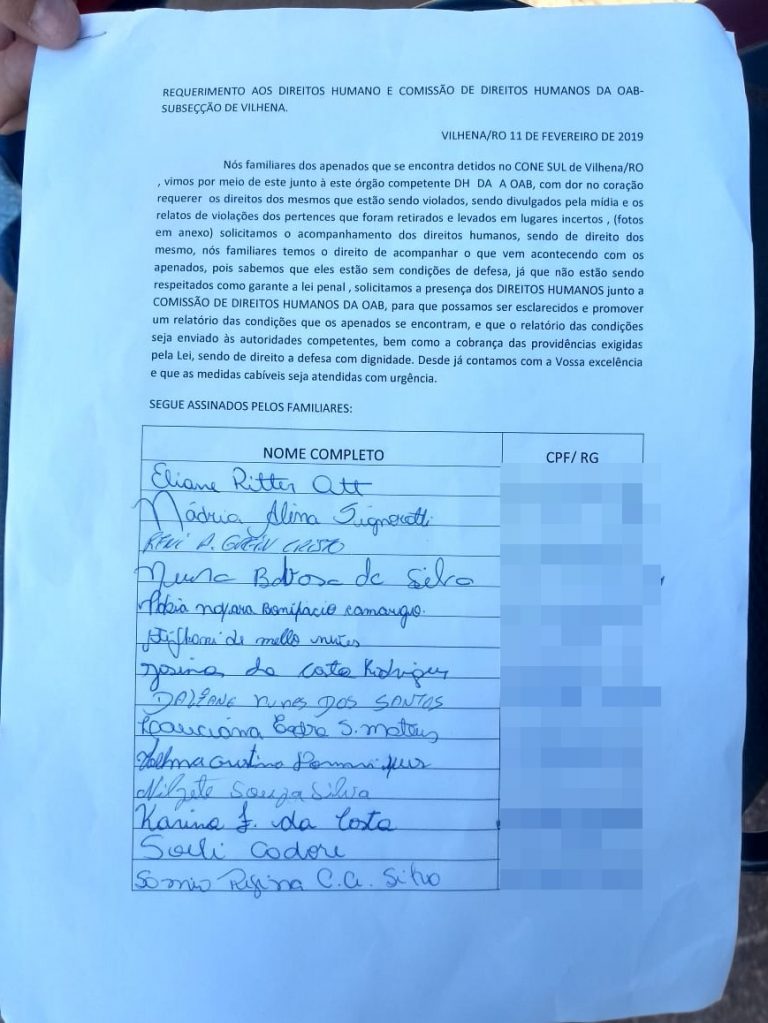 REQUERIMENTO AOS DIREITOS HUMANO E COMISSÃO DE DIREITOS HUMANOS DA OAB-
SUBSECÇÃO DE VILHENA.
VILHENA/RO 11 DE FEVEREIRO DE 2019
Nós familiares dos apenados que se encontra detidos no CONE SUL de Vilhena/RO
, vimos por meio de este junto à este órgão competente DH DA A OAB, com dor no coração
requerer os direitos dos mesmos que estão sendo violados, sendo divulgados pela mídia e os
relatos de violações dos pertences que foram retirados e levados em lugares incertos , (fotos
em anexo) solicitamos o acompanhamento dos direitos humanos, sendo de direito dos
mesmo, nós familiares temos o direito de acompanhar o que vem acontecendo com os
apenados, pois sabemos que eles estão sem condições de defesa, já que não estão sendo
respeitados como garante a lei penal , solicitamos a presença dos DIREITOS HUMANOS junto a
COMISSÃO DE DIREITOS HUMANOS DA OAB, para que possamos ser esclarecidos e promover
um relatório das condições que os apenados se encontram, e que o relatório das condições
seja enviado às autoridades competentes, bem como a cobrança das providências exigidas
pela Lei, sendo de direito a defesa com dignidade. Desde já contamos com a Vossa excelência
e que as medidas cabíveis seja atendidas com urgência.
SEGUE ASSINADOS PELOS FAMILIARES:
NOME COMPLETO CPF/ RG
Eliane Ritter Ott
Nádria Alina
CRISTO
da Silva
Bonifacio camargo.
de mello nunes
Josina da Costa Rodrigues
DAIANE NUNES DOS SANTOS
S. mateus
Nilzete Souza Silva
Karina F. da Costa
Sueli Codore
Regina C.A. Silva